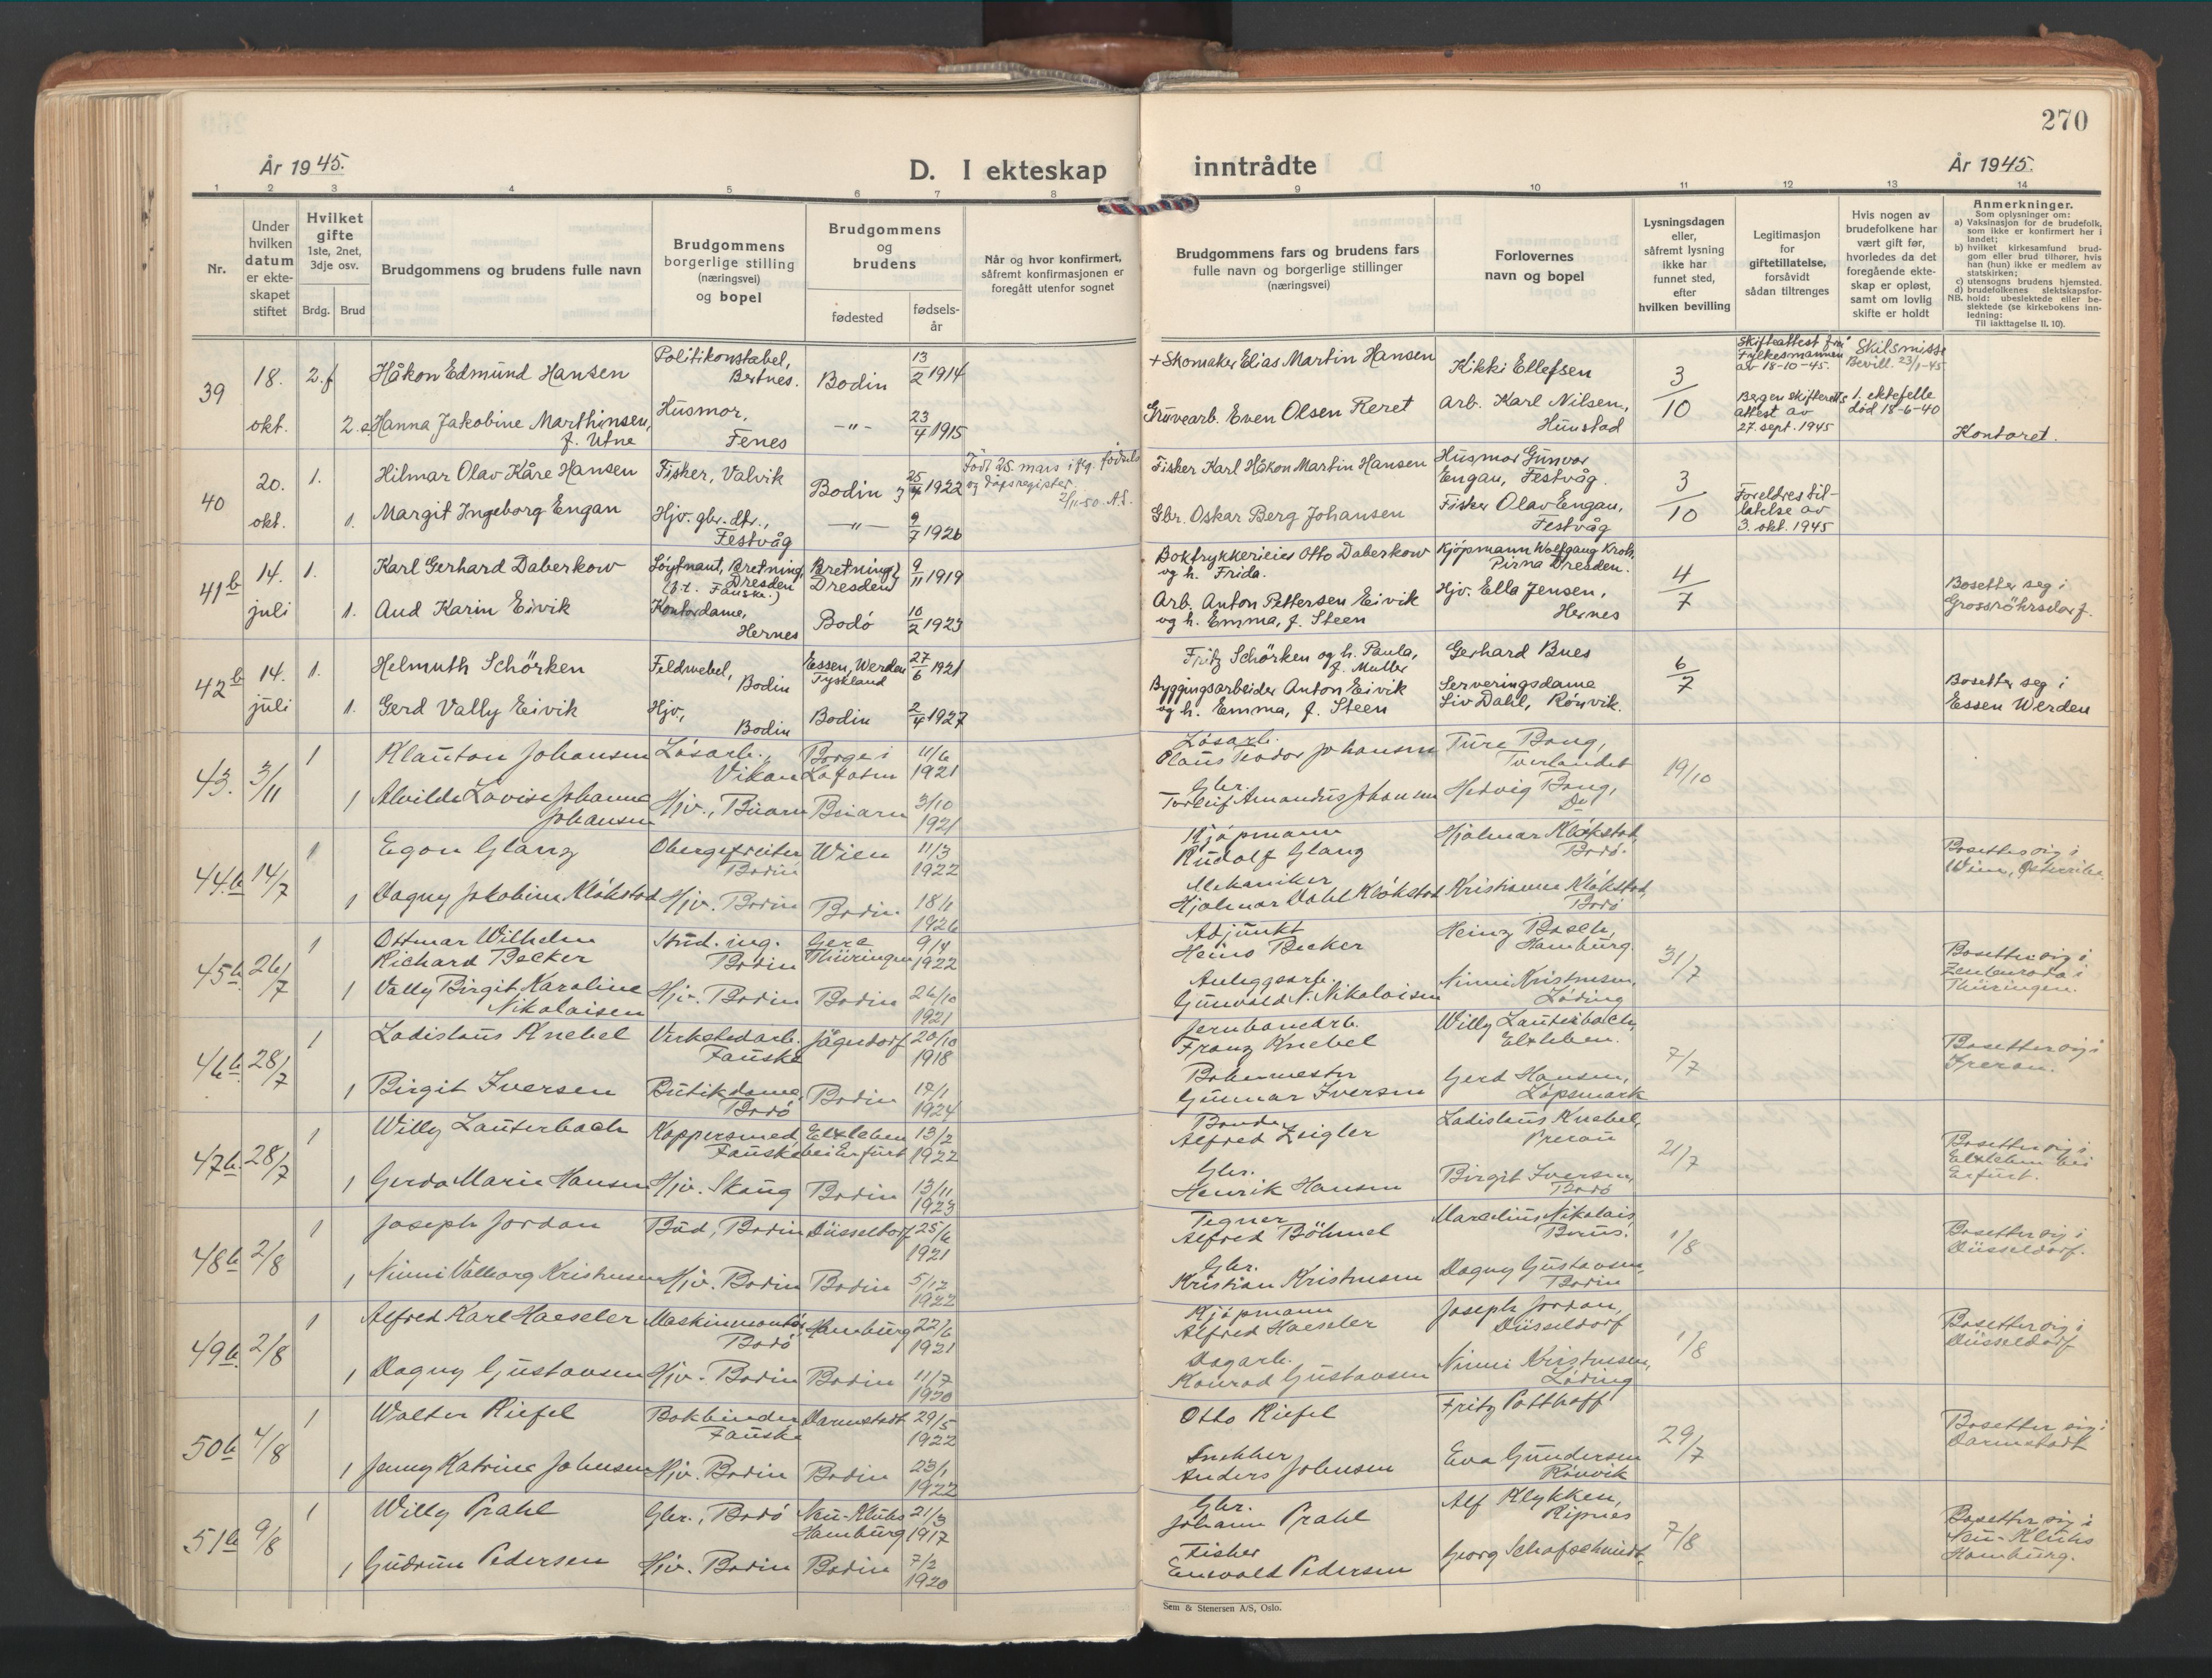 270
År 1945.
D. I ekteskap inntrådte
År 1945.
1 2 3 4 5 6 7 8 9 10 11 12 13 14
Nr.
Under hvilken datum er ekteskapet stiftet
Hvilket gifte
1ste, 2net, 3dje osv.
Brdg. Brud
Brudgommens og brudens fulle navn
Brudgommens borgerlige stilling (næringsvei) og bopel
Brudgommens og brudens
fødested
fødselsår
Når og hvor konfirmert, såfremt konfirmasjonen er foregått utenfor sognet
Brudgommens fars og brudens fars fulle navn og borgerlige stillinger (næringsvei)
Forlovernes navn og bopel
Lysningsdagen eller, såfremt lysning ikke har funnet sted, efter hvilken bevilling
Legitimasjon for giftetillatelse, forsåvidt sådan tiltrenges
Hvis nogen av brudefolkene har vært gift før, hvorledes da det foregående ekteskap er opløst, samt om lovlig skifte er holdt
Anmerkninger.
Som oplysninger om:
a) Vaksinasjon for de brudefolk, som ikke er konfirmert her i landet;
b) hvilket kirkesamfund brudgom eller brud tilhører, hvis han (hun) ikke er medlem av statskirken;
c) utensogns brudens hjemsted.
d) brudefolkenes slektskapsforhold: ubeslektede eller beslektede (se kirkebokens innledning:
NB.
Til iakttagelse II. 10).
39 18. okt. 2.f Håkon Edmund Hansen Politikonstabel, Bertnes. Bodin 13/2 1914 + Skomaker Elias Martin Hansen Kikki Ellefsen 3/10 Skifteattest fra Fylkesmannen av 18-10-45. Skilsmisse Bevill. 23/1-45
2.e. Hanna Jakobine Marthinsen, f. Utne Husmor, Fenes -"- 23/4 1915 Gruvearb. Even Olsen Reret Arb. Karl Nilsen, Hunstad Bergen skifteretts attest av 27. sept. 1945 1. ektefelle død 18-6-40 Kontoret.
40 20. okt. 1. Hilmar Olav Kåre Hansen Fisker, Valvik Bodin 25/4 1922 Født 25. mars i flg. fødsels og dåpsregister. 2/11-50 A.S. Fisker Karl Håkon Martin Hansen Husmor Gunvor Engan, Festvåg. 3/10 Foreldres tillatelse av 3. okt. 1945
1. Margit Ingeborg Engan Hjv. gbr. dtr., Festvåg -"- 9/7 1926 Gbr. Oskar Berg Johansen Fisker Olav Engan, Festvåg
41b 14. juli 1. Karl Gerhard Daberkow Løytnant, Bretning, Dresden (p.t. Fauske.) Bretning, Dresden 9/11 1919 Boktrykkerieier Otto Daberkow og h. Frida. Kjøpmann Wolfgang Kroh, Pirna Dresden. 4/7 Bosetter seg i Grossröhrsdorf.
1. Aud Karin Eivik Kontordame, Hernes Bodø 10/2 1923 Arb. Anton Pettersen Eivik og h. Emma, f. Steen Hjv. Ella Jensen, Hernes
42b 14. juli 1. Helmuth Schörken Feldwebel, Bodin Essen, Werden Tyskland 27/6 1921 Fritz Schörken og h. Paula, f. Muller Gerhard Bues 6/7 Bosetter seg i Essen Werden
1. Gerd Vally Eivik Hjv., Bodin Bodin 2/4 1927 Byggingsarbeider Anton Eivik og h. Emma, f. Steen Serveringsdame Liv Dahl, Rønvik.
43. 3/11 1 Klauton Johansen Løsarb., Vikan Borge i Lofoten 11/6 1921 Løsarb. Claus Teodor Johansen Ture Bong, Tverlandet 19/10
1 Alvilde Lovise Johanne Johansen Hjv., Biarn Biarn 3/10 1921 Gbr. Torleif Amandus Johansen Hedvig Bong, Do
44b 14/7 1 Egon Glanz Obergefreiter Bodin Wien 11/3 1922 Kjøpmann Rudolf Glanz Hjalmar Kløkstad, Bodø. Bosetter sig i Wien, Østerrike
1 Dagny Jakobine Kløkstad Hjv. Bodin Bodin 18/1 1926 Mekaniker Hjalmar Dahl Kløkstad Kristianne Kløkstad, Bodø
45b 26/7 1 Ottmar Wilhelm Richard Becker Stud. ing. Bodin Gera Thüringen 9/4 1922 Adjunkt Heino Becker Heinz Bosch, Hamburg. 31/7 Bosetter sig i Zeulenroda i Thüringen.
1 Vally Birgit Karoline Nikolaisen Hjv. Bodin Bodin 26/10 1921 Anleggsarb. Gunvald N. Nikolaisen Ninni Kristensen, Løding
46b 28/7 1 Ladislaus Knebel Verkstedarb. Fauske Jägerdorf 20/10 1918 Jernbanearb. Franz Knebel Willy Lauterbach, Elxleben. 7/7 Bosetter sig i
1 Birgit Iversen Butikdame, Bodø Bodin 14/1 1924 Banemester Gunnar Iversen Gerd Hansen, Løpsmark
47b 28/7 1 Willy Lauterbach Koppersmed, Fauske Elxleben bei Erfurt 13/2 1922 Bonde Alfred Zeigler Ladislaus Knebel, 21/7 Bosetter sig i Elxleben bei Erfurt.
1 Gerda Marie Hansen Hjv. Skaug Bodin 13/11 1923 Gbr. Henrik Hansen Birgit Iversen, Bodø
48b 2/8 1 Joseph Jordan Bud, Bodin Düsseldorf 25/6 1921 Tegner Alfred Böhmel Marcelius Nikolais 1/8 Bosetter sig i Düsseldorf.
1 Ninni Valborg Kristensen Hjv. Bodin Bodin 5/12 1922 Gbr. Kristian Kristensen Dagny Gustavsen, Bodin
49b 2/8 1 Alfred Karl Haeseler Maskinmontør Bodø Hamburg 22/6 1921 Kjøpmann Alfred Haeseler Joseph Jordan, Düsseldorf 1/8 Bosetter sig i Düsseldorf
1 Dagny Gustavsen Hjv. Bodin Bodin 11/7 1920 Dagarb. Konrad Gustavsen Ninni Kristensen, Løding
50b 4/8 1 Walter Riefel Bokbinder Fauske Darmstadt 29/5 1922 Otto Riefel Fritz Potthoff 29/7 Bosetter sig i Darmstadt
1 Jenny Katrine Johnsen Hjv. Bodin Bodin 23/1 1922 Snekker Anders Johnsen Eva Gundersen Rønvik
51b 9/8 1 Willy Prahl Gbr., Bodø Hamburg 21/3 1917 Gbr. Johann Prahl Alf Klykken, Ripnes 7/8 Bosetter sig i Hamburg.
1 Gudrun Pedersen Hjv. Bodin Bodin 7/2 1920 Fisker Enevold Pedersen Georg Schafschmidt
Sem & Stenersen A/S, Oslo.